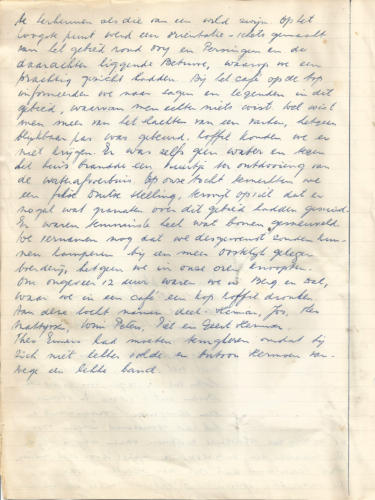 te herkennen als die van een wild zwijn. Op het
hoogste punt werd een orientatie-schets gemaakt
van het gebied rond Ooy en Persingen en de
daarachter liggende Betuwe, waarop we een
prachtig gezicht hadden. Bij het café op de top
informeerden we naar sagen en legenden in dit
gebied, waarvan men echter niets wist. Wel wist
men meer van het slachten van een varken, hetgeen
blijkbaar pas was gebeurd. Koffie konden we er
niet krijgen. Er was zelfs geen water en tegen
het huis brandde een vuurtje ter ontdooiing van
de waterafvoerbuis. Op onze tocht bemerkten we
een Duitse stelling, terwijl op viel dat er
nogal wat granaten over dit gebied hadden gesuisd.
Er waren tenminste heel wat bomen gesneuveld.
We vernamen nog dat we desgewenst zouden kun-
nen kamperen bij een meer oostelijk gelegen
boerderij, hetgeen we in onze oren knoopten.
Om ongeveer 12 uur waren we in Berg en Dal,
waar we in een café een kop koffie dronken.
Aan deze tocht namen deel: Herman, Jos,
Wim Peters, Piet en Geert Herman.
Theo had moeten terugkeren omdat hij
zich niet lekker voelde en Antoon Hermsen van-
wege een lekke band.